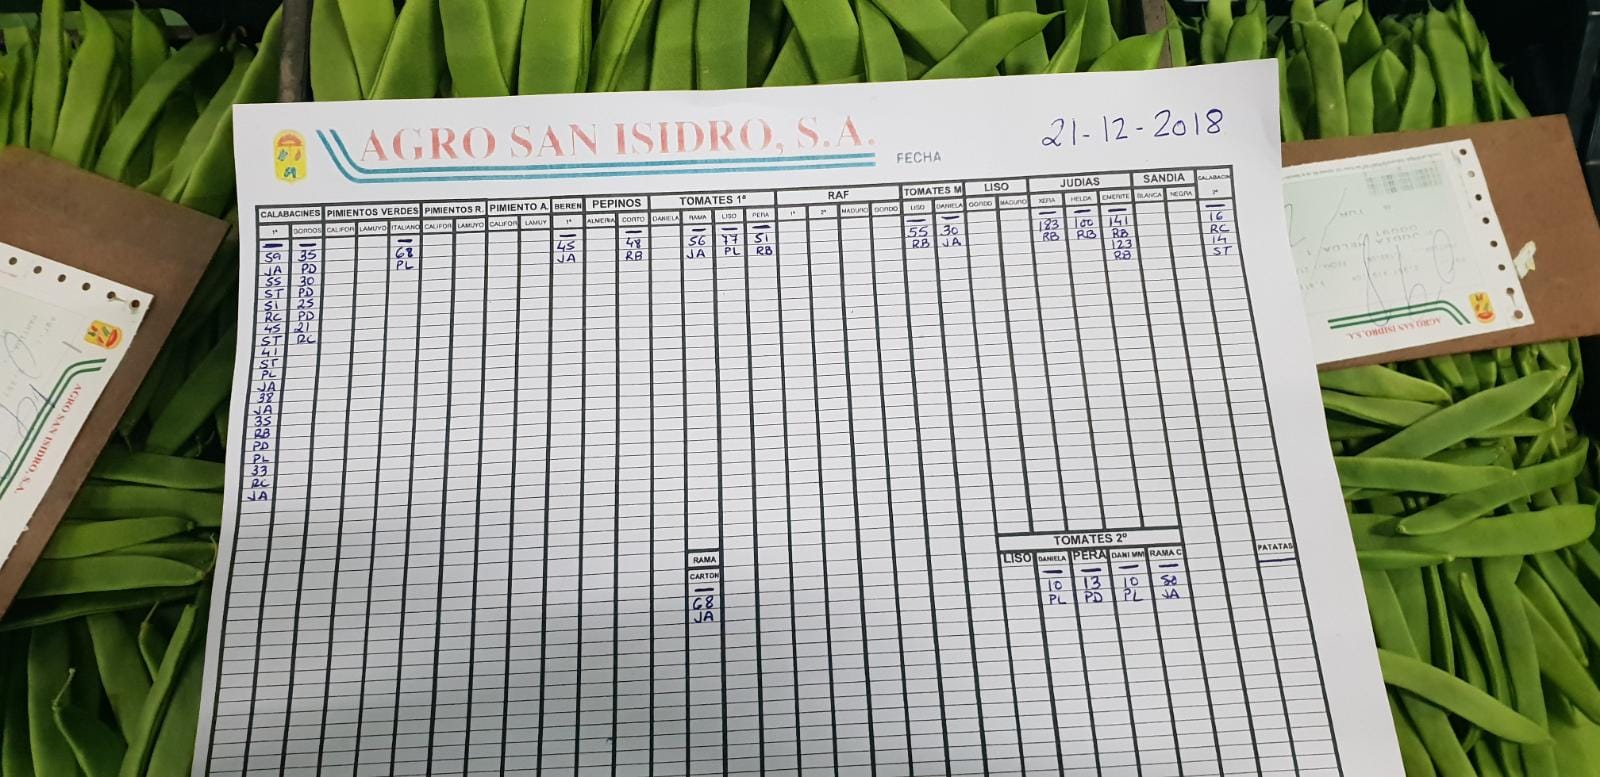 AGRO SAN ISIDRO, S.A.
FECHA 21-12-2018
CALABACINES PIMIENTOS VERDES PIMIENTOS R. PIMIENTO A. BEREN PEPINOS TOMATES 1ª RAF TOMATES M LISO JUDIAS SANDIA CALABACIN
1ª GORDOS CALIFOR LAMUYO ITALIANO CALIFOR LAMUYO CALIFOR LAMUY 1ª ALMERIA CORTO DANIELA RAMA LISO PERA 1ª 2ª MADURO GORDO LISO DANIELA GORDO MADURO XERA HELDA EMERITE BLANCA NEGRA 2ª
59 35 68 45 48 56 77 51 55 30 183 100 141 16
JA PD PL JA RB JA PL RB RB JA RB RB RB RC
55 30 123 14
ST PD RB ST
51 25
RC PD
45 21
ST RC
41
ST
PL
JA
38
JA
35
RB
PD
PL
33
RC
JA
RAMA
CARTON
68
JA
TOMATES 2º
LISO DANIELA PERA DANI MM RAMA C
10 13 10 50
PL PD PL JA
PATATAS
AGRO SAN ISIDRO, S.A.
AGRO SAN ISIDRO, S.A.